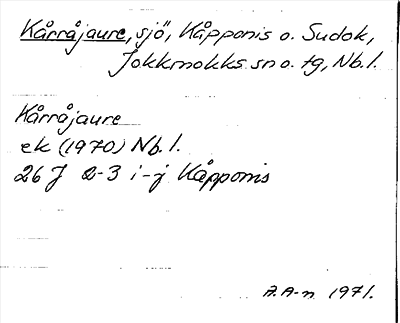 Kårråjaure, sjö, Kåpponis o. Sudok,
Jokkmokks sn o. tg, Nb.l.
Kårråjaure
ek (1970) Nb.l.
26 J 2-3 i-j Kåpponis
A.A-n 1971.